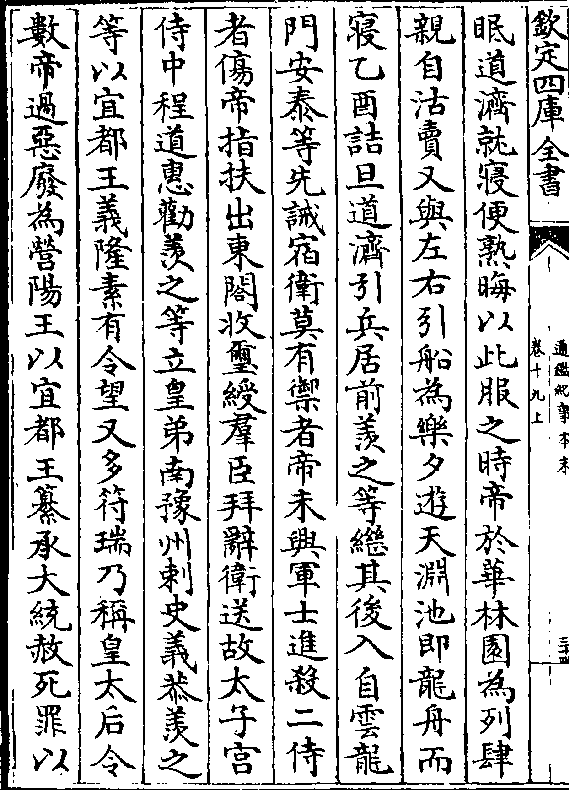 欽定四庫全書
通鑑紀事本末
卷十九上
眠道濟就寢便熟晦以此服之時帝於華林園為列肆
親自沽賣又與左右引船為樂夕遊天淵池即龍舟而
寢乙酉詰旦道濟引兵居前羨之等繼其後入自雲龍
門安泰等先誡宿衛莫有禦者帝未興軍士進殺二侍
者傷帝指扶出東閤收璽綬羣臣拜辭衛送故太子宮
侍中程道惠勸羨之等立皇弟南豫州刺史義恭羨之
等以宜都王義隆素有令望又多符瑞乃稱皇太后令
數帝過惡廢為營陽王以宜都王纂承大統赦死罪以